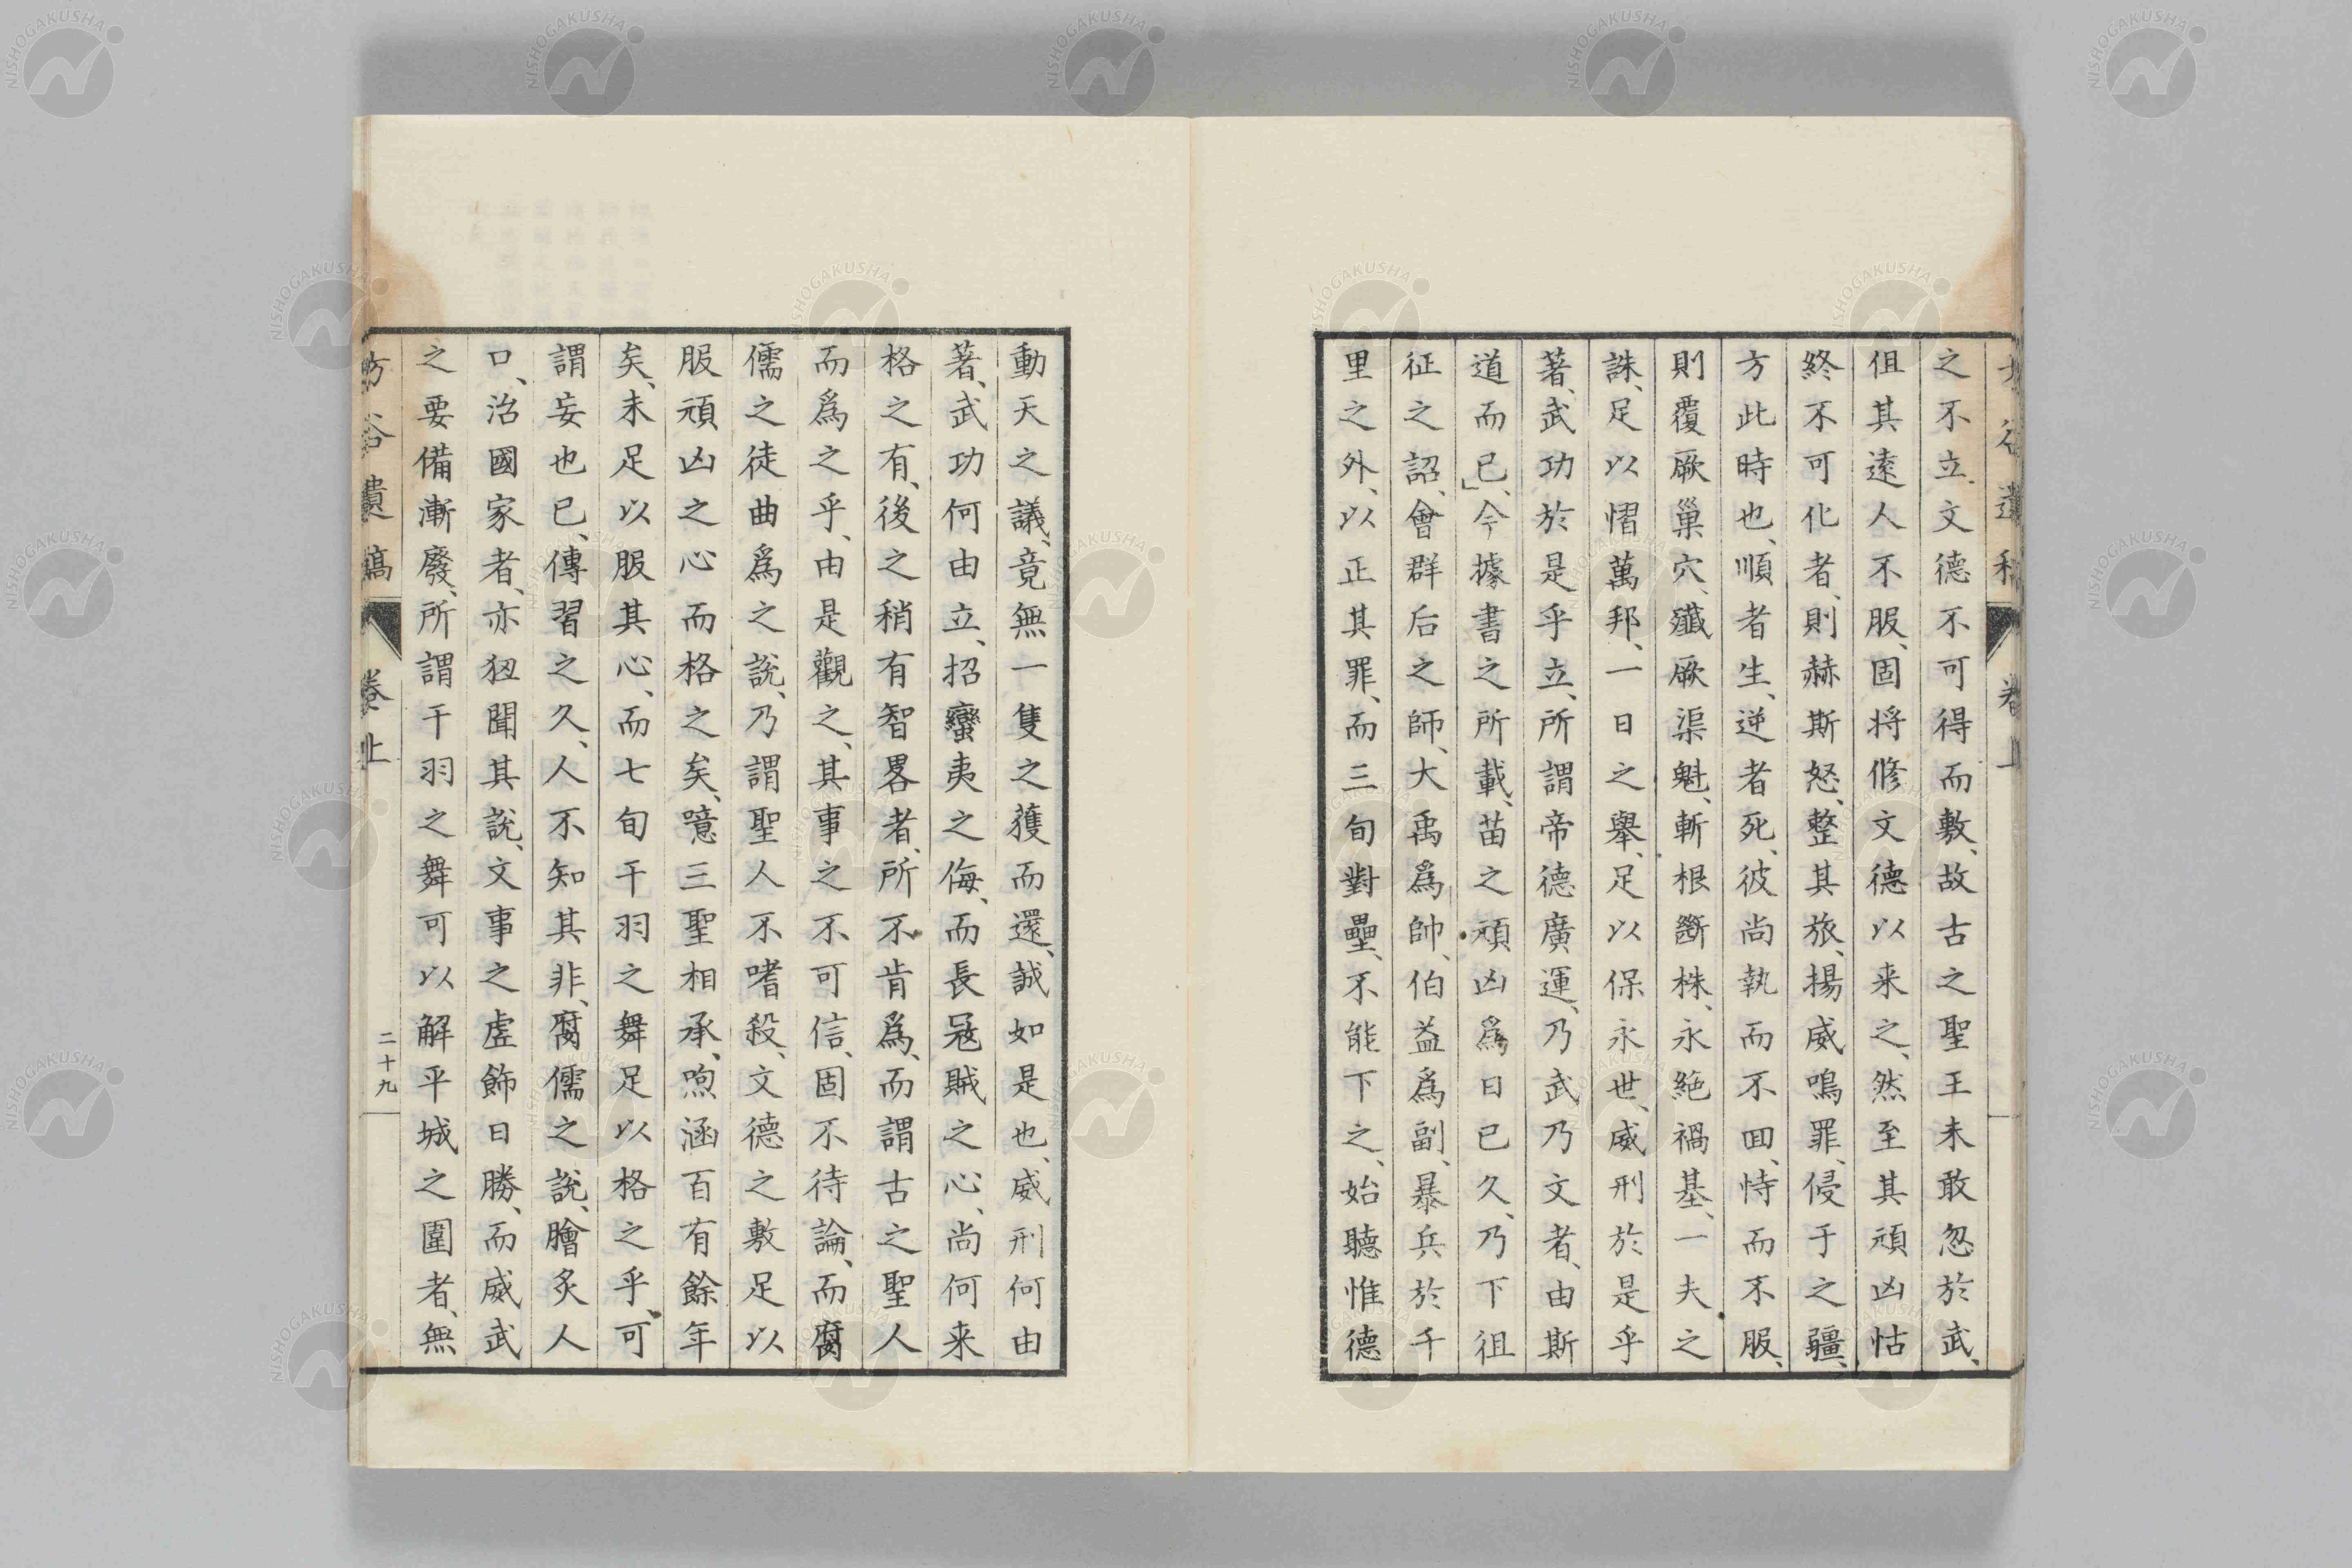 之不立文德不可得而敷、故古之聖王未敢忽於武、
徂其遠人不服、固将修文德以来之、然至其頑凶怙
終不可化者、則赫斯怒、整其旅、揚威鳴罪、侵于之疆、
方此時也、順者生、逆者死、彼尚執而不囬、恃而不服、
則覆厥巢穴、殲厥渠魁、斬根斷株、永絶禍基、一夫之
誅、足以慴萬邦、一日之舉、足以保永世、威刑於是乎
著、武功於是乎立、所謂帝德廣運、乃武乃文者、由斯
道而已」、今據書之所載、苗之頑凶爲日已久、乃下徂
征之詔、會群后之師、大禹爲帥、伯益爲副、暴兵於千
里之外、以正其罪、而三旬對壘、不能下之、始聽惟德
動天之議、竟無一隻之獲而還、誠如是也、威刑何由
著、武功何由立、招蠻夷之侮、而長冦賊之心、尚何来
格之有、後之稍有智畧者、所不肯爲、而謂古之聖人
而爲之乎、由是觀之、其事之不可信、固不待論、而腐
儒之徒曲爲之說、乃謂聖人不嗜殺、文德之敷足以
服頑凶之心而格之矣、噫三聖相承、喣涵百有餘年
矣、未足以服其心、而七旬干羽之舞足以格之乎、可
謂妄也已、傳習之久、人不知其非、腐儒之說、膾炙人
口、治國家者、亦狃聞其說、文事之虛飾日勝、而威武
之要備漸廢、所謂干羽之舞可以解平城之圍者、無
遺稿 卷上 二十九